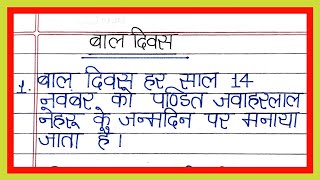 बाल दिवस
1. बाल दिवस हर साल 14
नवंबर को पण्डित जवाहरलाल
नेहरू के जन्मदिन पर मनाया
जाता है।